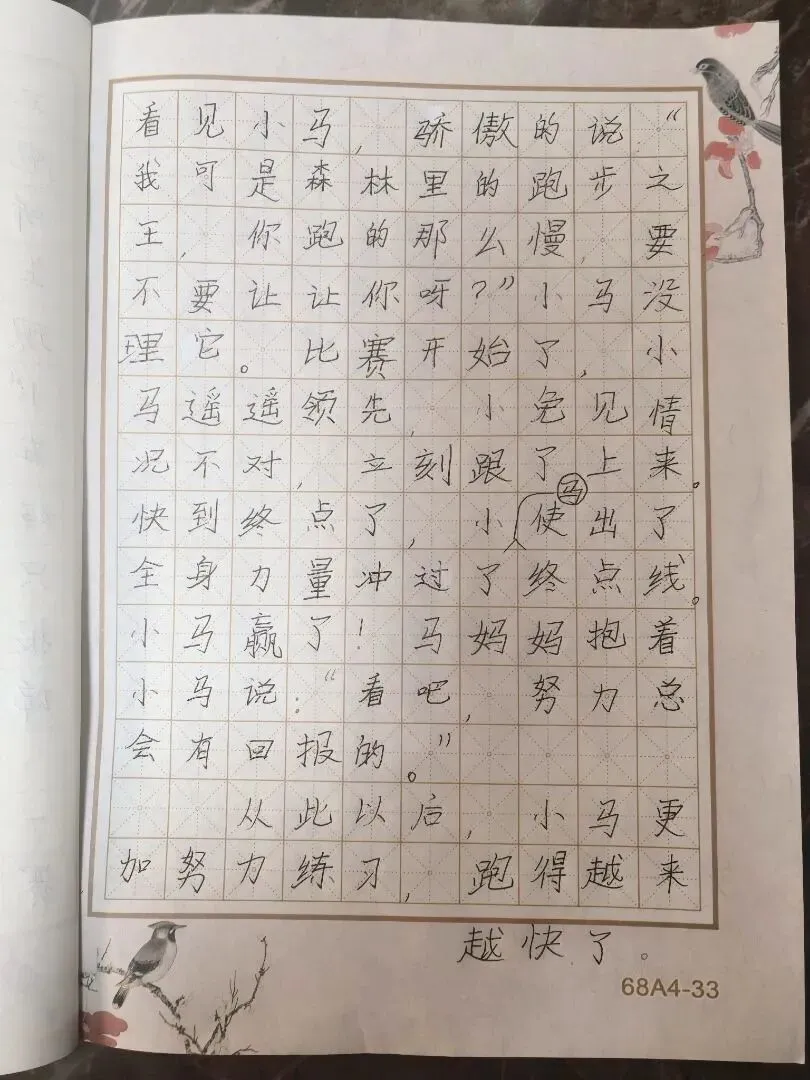 看见小马，骄傲的说：“
我可是森林里的跑步之
王，你跑的那么慢，要
不要让让你呀？”小马没
理它。比赛开始了，小
马遥遥领先，小兔见情
况不对，立刻跟了上来。
快到终点了，小马使出了
全身力量冲过了终点线。
小马赢了！马妈妈抱着
小马说：“看吧，努力总
会有回报的。”
从此以后，小马更
加努力练习，跑得越来
越快了。
68A4-33